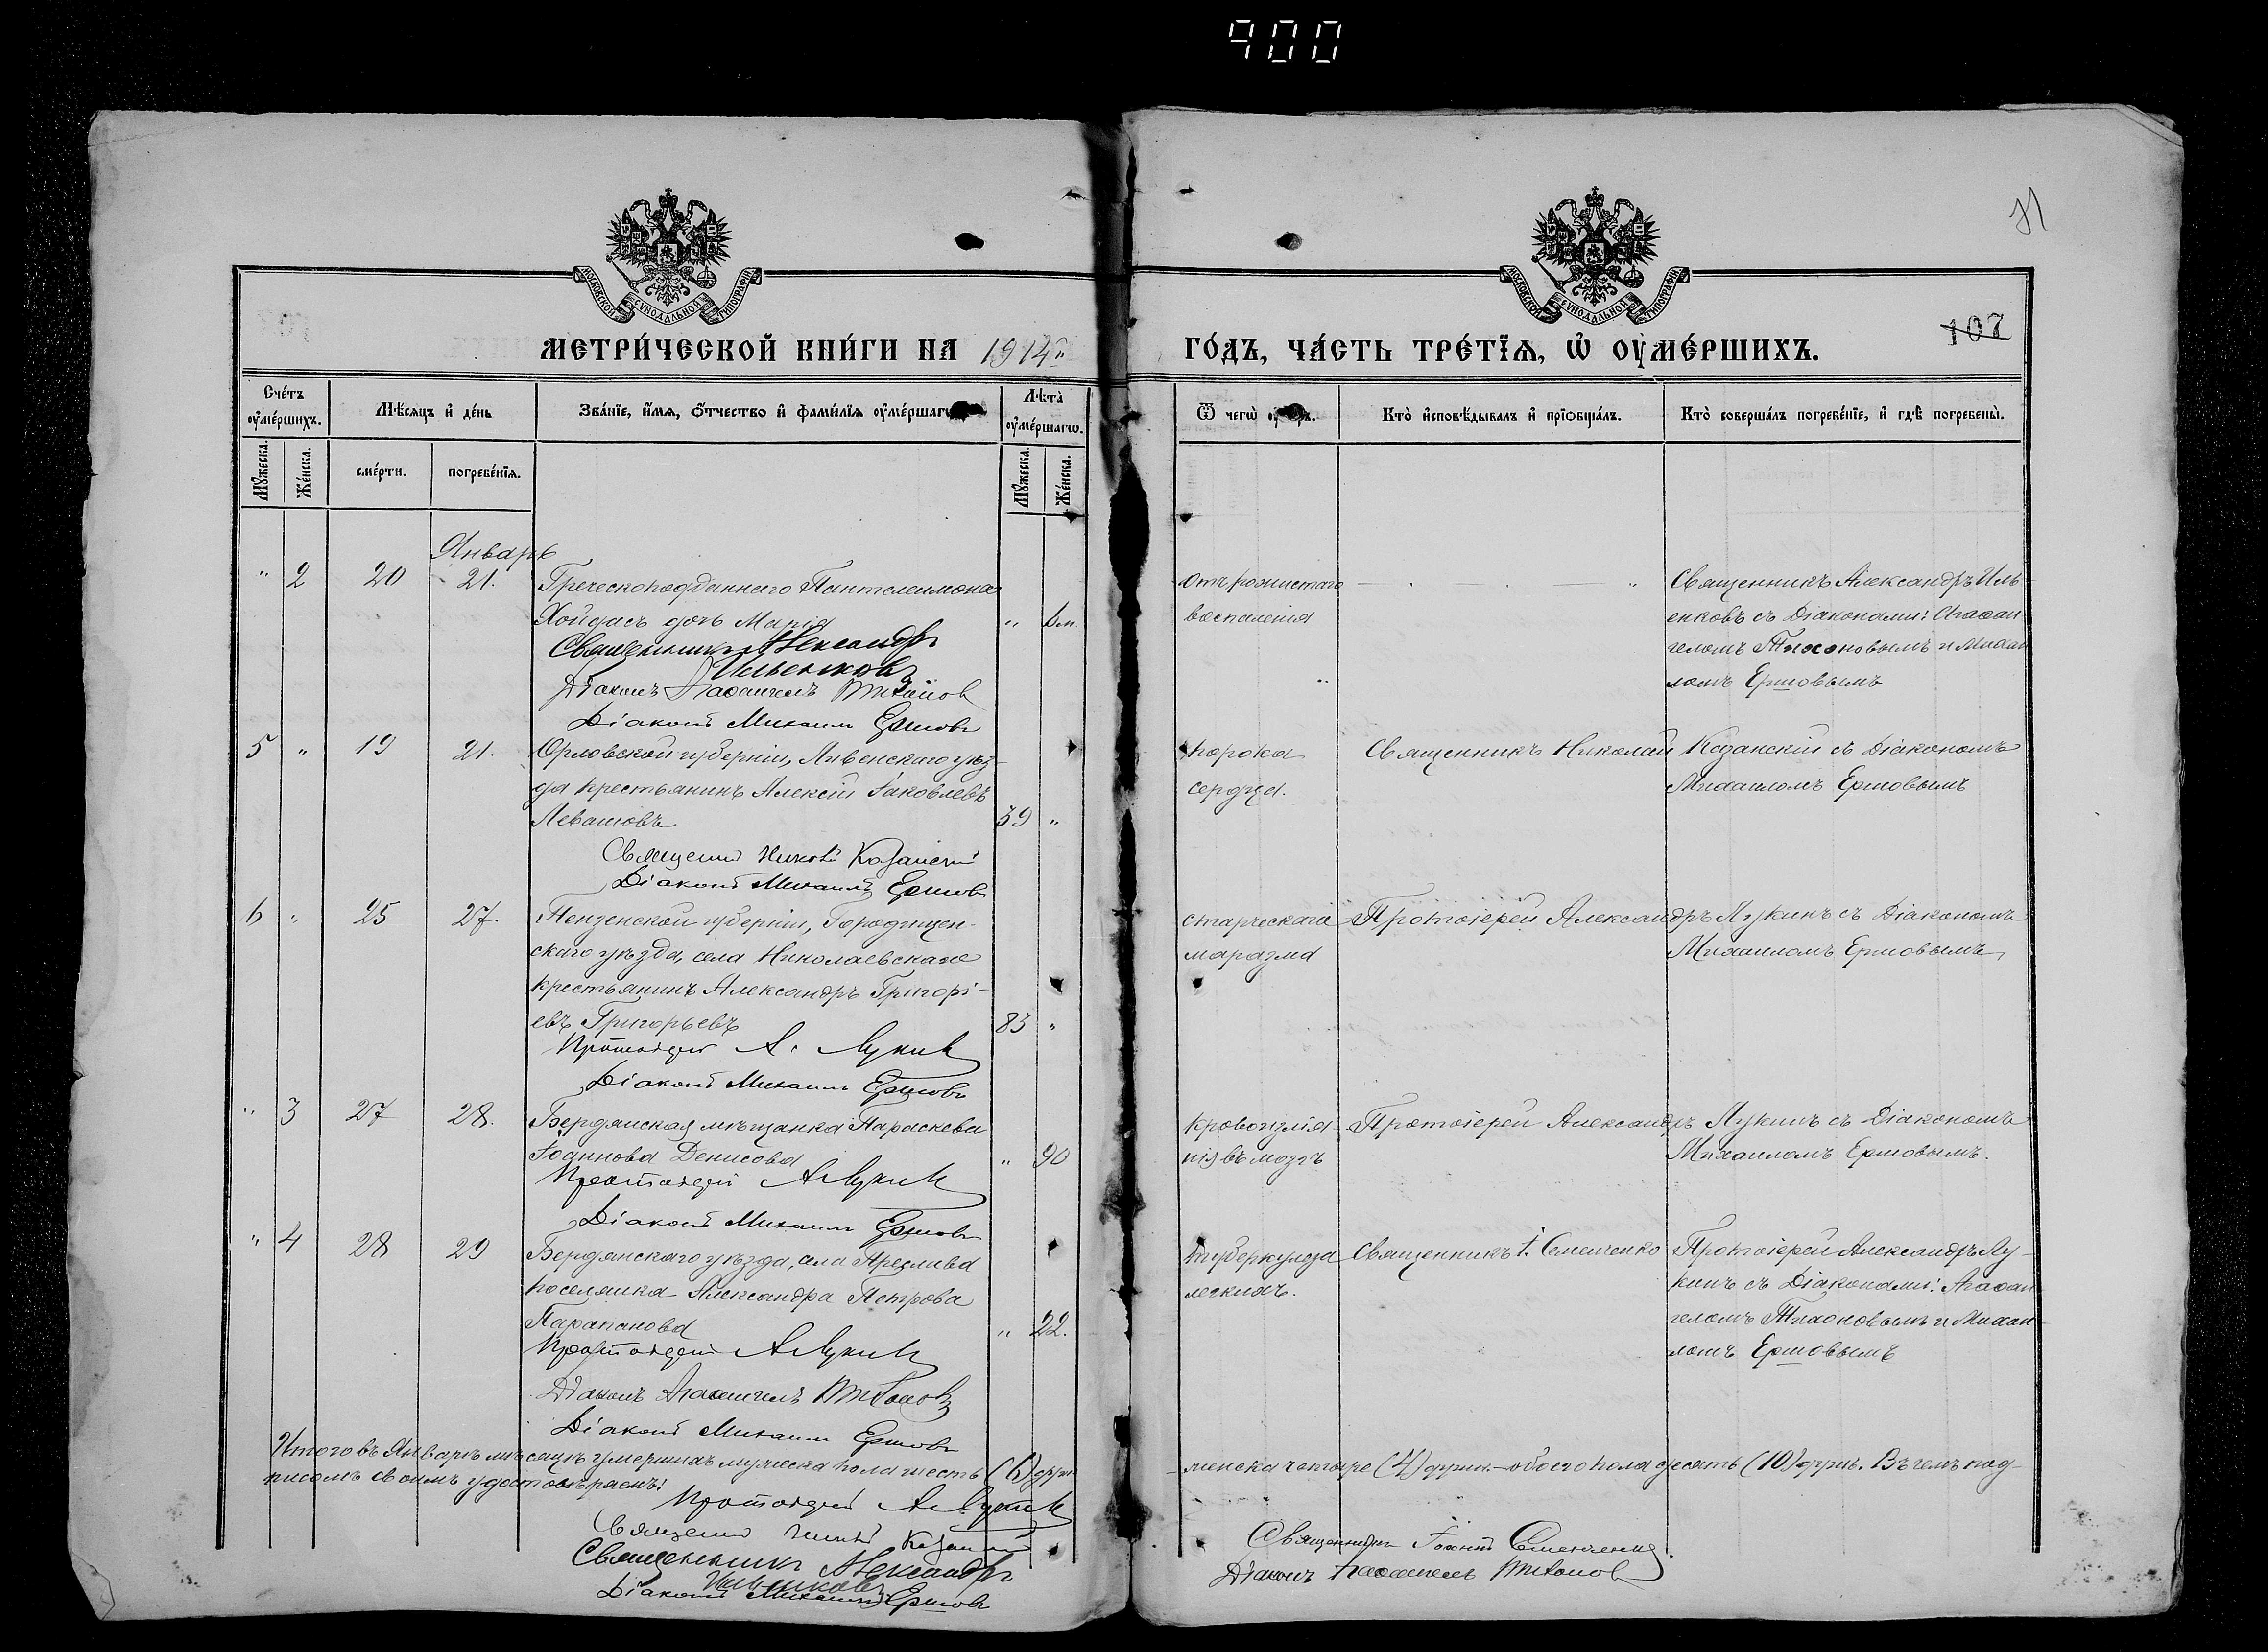 900
71
107
МОСКОВСКОЙ СѴНОДАЛЬНОЙ ТИПОГРАФІИ
МОСКОВСКОЙ СѴНОДАЛЬНОЙ ТИПОГРАФІИ
МЕТРИ́ЧЕСКОЙ КНИ́ГИ НА 1914й
ГО́ДЪ, ЧА́СТЬ ТРЕ́ТЇѦ, Ѡ҆ ОУ҆МЕ́РШИХЪ.
Сче́тъ оу҆ме́ршихъ.
Мѣ́сяцъ и҆ де́нь
Зва́нїе, и҆́мя, ѻ҆́тчество и҆ фамѝлїя оу҆ме́ршагѡ
Лѣта̀ оу҆ме́ршагѡ.
Ѿ чегѡ̀
Кто̀ и҆сповѣ́дывалъ и҆ прїѻбща́лъ.
Кто̀ соверша́лъ погребе́нїе, и҆ гдѣ̀ погребены̀.
Мꙋ́жеска.
Же́нска.
сме́рти.
погребе́нїя.
Мꙋ́жеска.
Же́нска.
Январь
" 2 20 21. Греческоподданнаго Пантелеимона
Хойдасъ дочь Марія "
Священникъ Александръ
Ильенковъ
Діаконъ Агаѳангелъ Тихоновъ
Діаконъ Михаилъ Ершовъ
отъ рожистаго
воспаленія
Священникъ Александръ Иль
енковъ съ Діаконами: Агаѳан
геломъ Тихоновымъ и Михаи
ломъ Ершовымъ
5 " 19 21. Орловской губерніи, Ливенскаго уѣз-
да крестьянинъ Алексій Іаковлевъ
Левашовъ 39 "
Священн Николай Казанскій
Діаконъ Михаилъ Ершовъ
порока
сердца.
Священникъ Николай Казанскій съ Діакономъ
Михаиломъ Ершовымъ
6 " 25 27. Пензенской губерніи, Городищен-
скаго уѣзда, села Николаевскаго
крестьянинъ Александръ Григорі-
евъ Григорьевъ 83 "
Протоіерей А. Лукинъ
Діаконъ Михаилъ Ершовъ
старческаго
маразма
Протоіерей Александръ Лукинъ съ Діакономъ
Михаиломъ Ершовымъ
" 3 27 28. Бердянская мѣщанка Параскева
Іоаннова Денисова " 90
Протоіерей А. Лукинъ
Діаконъ Михаилъ Ершовъ
кровоизлія-
нія въ мозгъ
Протоіерей Александръ Лукинъ съ Діакономъ
Михаиломъ Ершовымъ.
" 4 28 29 Бердянскаго уѣзда, села Преслава
поселянка Александра Петрова
Парапанова " 22.
Протоіерей А. Лукинъ
Діаконъ Агаѳангелъ Тихоновъ
Діаконъ Михаилъ Ершовъ
туберкулеза
легкихъ.
Священникъ І. Семенченко
Протоіерей Александръ Лу-
кинъ съ Діаконами: Агаѳан
геломъ Тихоновымъ и Михаи-
ломъ Ершовымъ
Итого въ Январѣ мѣсяцѣ умершихъ мужеска пола шесть (6) душъ
женска четыре (4) души.—обоего пола десять (10) душъ. Въ чемъ под-
писомъ своимъ удостовѣряемъ:
Протоіерей А. Лукинъ
Священн Казанскій
Священникъ Александръ
Ильенковъ
Діаконъ Михаилъ Ершовъ
Священникъ Іоаннъ Семенченко.
Діаконъ Агаѳангелъ Тихоновъ